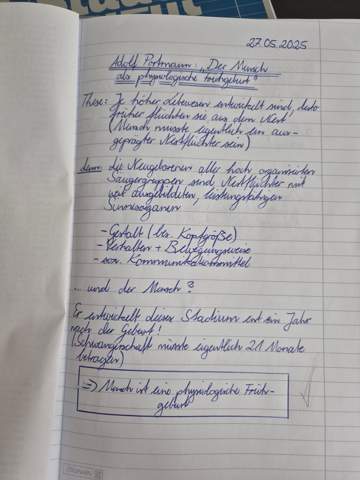 27.05.2025
Adolf Portmann: „Der Mensch
als physiologische Frühgeburt"
These: Je höher Lebewesen entwickelt sind, desto
früher flüchten sie aus dem Nest
(Mensch müsste eigentlich ein aus-
geprägter Nestflüchter sein)
denn: die Neugeborenen aller hoch organisierten
Säugergruppen sind Nestflüchter mit
weit ausgebildeten, leistungsfähigen
Sinnesorganen
- Gestalt (bes. Kopfgröße)
- Verhalten + Bewegungsweise
- Kommunikationsmittel
... und der Mensch?
Er entwickelt dieses Stadium erst ein Jahr
nach der Geburt!
(Schwangerschaft müsste eigentlich 21 Monate
betragen)
=> Mensch ist eine physiologische Früh-
geburt